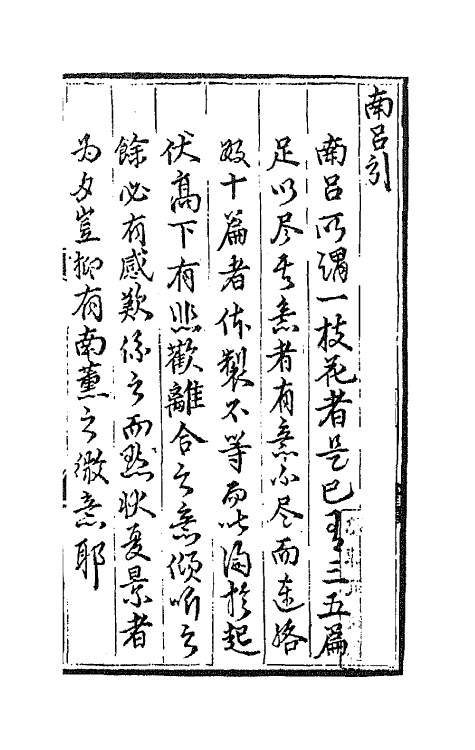 南呂引
南呂所謂一枝花者是已有三五篇
足以尽其意者有意不尽而連絡
数十篇者体製不等而皆
起
伏高下有悲歡離合之意傾听之
餘必有感歎係之而點狀夏景者
为多豈抑有南薰之微意耶